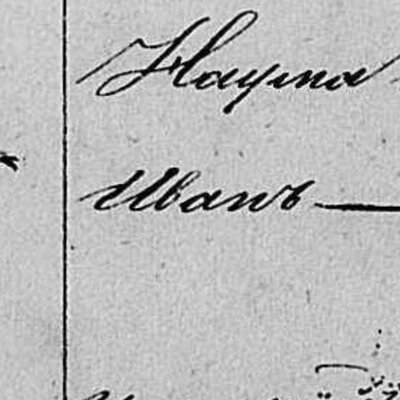 Наума
Иванъ —